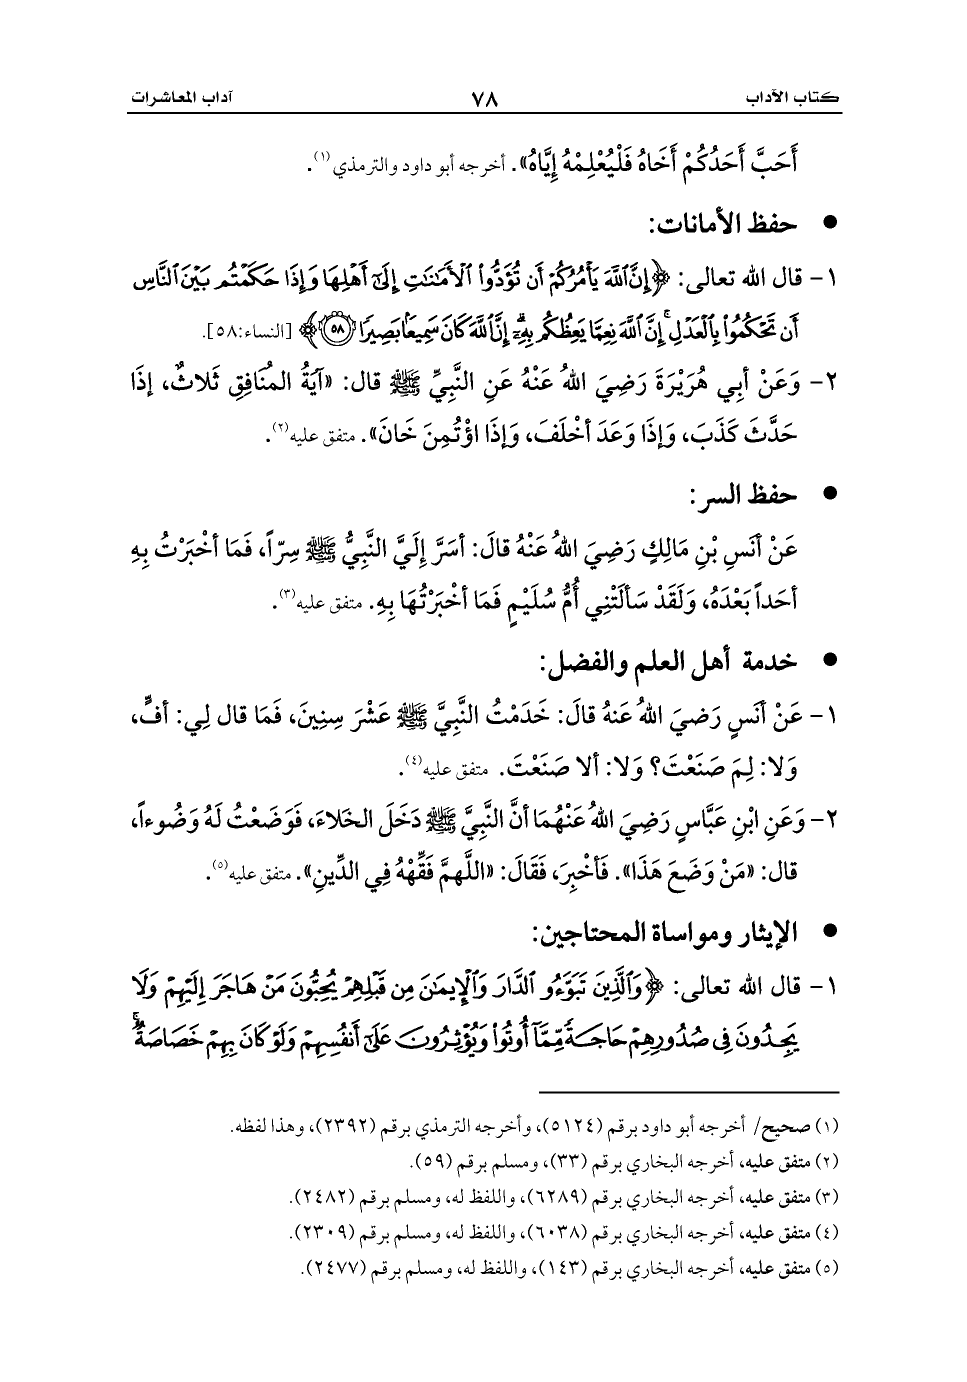 كتاب الآداب ٧٨ آداب المعاشرات
أَحَبَّ أَحَدُكُمْ أَخَاهُ فَلْيُعْلِمْهُ إِيَّاهُ». أخرجه أبو داود والترمذي(١).
● حفظ الأمانات:
١- قال الله تعالى: ﴿إِنَّ ٱللَّهَ يَأْمُرُكُمْ أَن تُؤَدُّوا۟ ٱلْأَمَٰنَٰتِ إِلَىٰٓ أَهْلِهَا وَإِذَا حَكَمْتُم بَيْنَ ٱلنَّاسِ
أَن تَحْكُمُوا۟ بِٱلْعَدْلِ ۚ إِنَّ ٱللَّهَ نِعِمَّا يَعِظُكُم بِهِۦٓ ۗ إِنَّ ٱللَّهَ كَانَ سَمِيعًۢا بَصِيرًا ٥٨﴾ [النساء:٥٨].
٢- وَعَنْ أبِي هُرَيْرَةَ رَضِيَ اللهُ عَنْهُ عَنِ النَّبِيِّ ﷺ قال: «آيَةُ المُنَافِقِ ثَلاثٌ، إذَا
حَدَّثَ كَذَبَ، وَإذَا وَعَدَ أخْلَفَ، وَإذَا اؤْتُمِنَ خَانَ». متفق عليه(٢).
● حفظ السر:
عَنْ أنَسِ بْنِ مَالِكٍ رَضِيَ اللهُ عَنْهُ قالَ: أسَرَّ إلَيَّ النَّبِيُّ ﷺ سِرّاً، فَمَا أخْبَرْتُ بِهِ
أحَداً بَعْدَهُ، وَلَقَدْ سَألَتْنِي أُمُّ سُلَيْمٍ فَمَا أخْبَرْتُهَا بِهِ. متفق عليه(٣).
● خدمة أهل العلم والفضل:
١- عَنْ أنَسٍ رَضيَ اللهُ عَنهُ قالَ: خَدَمْتُ النَّبِيَّ ﷺ عَشْرَ سِنِينَ، فَمَا قال لِي: أفٍّ،
وَلا: لِمَ صَنَعْتَ؟ وَلا: ألا صَنَعْتَ. متفق عليه(٤).
٢- وَعَنِ ابْنِ عَبَّاسٍ رَضِيَ اللهُ عَنْهُمَا أنَّ النَّبِيَّ ﷺ دَخَلَ الخَلاءَ، فَوَضَعْتُ لَهُ وَضُوءاً،
قال: «مَنْ وَضَعَ هَذَا». فَأخْبِرَ، فَقَالَ: «اللَّهمَّ فَقِّهْهُ فِي الدِّينِ». متفق عليه(٥).
● الإيثار ومواساة المحتاجين:
١- قال الله تعالى: ﴿وَٱلَّذِينَ تَبَوَّءُو ٱلدَّارَ وَٱلْإِيمَٰنَ مِن قَبْلِهِمْ يُحِبُّونَ مَنْ هَاجَرَ إِلَيْهِمْ وَلَا
يَجِدُونَ فِى صُدُورِهِمْ حَاجَةً مِّمَّآ أُوتُوا۟ وَيُؤْثِرُونَ عَلَىٰٓ أَنفُسِهِمْ وَلَوْ كَانَ بِهِمْ خَصَاصَةٌ ۚ
(١) صحيح/ أخرجه أبو داود برقم (٥١٢٤)، وأخرجه الترمذي برقم (٢٣٩٢)، وهذا لفظه.
(٢) متفق عليه، أخرجه البخاري برقم (٣٣)، ومسلم برقم (٥٩).
(٣) متفق عليه، أخرجه البخاري برقم (٦٢٨٩)، واللفظ له، ومسلم برقم (٢٤٨٢).
(٤) متفق عليه، أخرجه البخاري برقم (٦٠٣٨)، واللفظ له، ومسلم برقم (٢٣٠٩).
(٥) متفق عليه، أخرجه البخاري برقم (١٤٣)، واللفظ له، ومسلم برقم (٢٤٧٧).